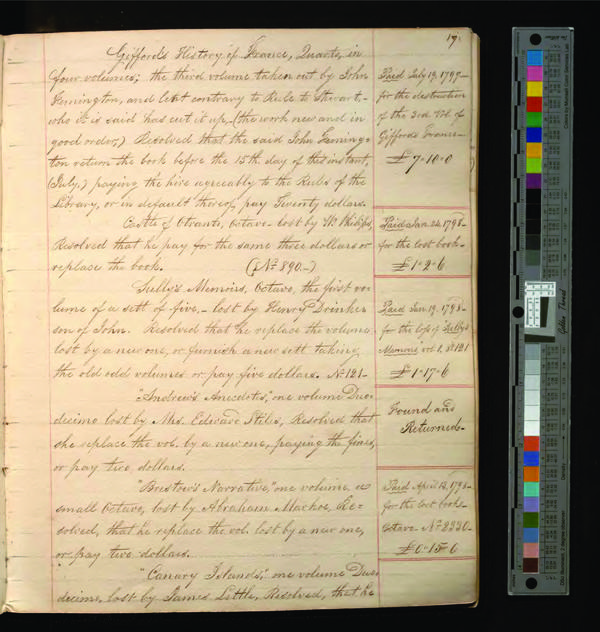 17.
Gifford's History of France, Quarto, in
four volumes; the third volume taken out by John
Femington, and lent contrary to Rule to Stewart,-
who it is said has cut it up,- (the work new and in
good order,) Resolved that the said John Feming=
ton return the book before the 15th day of this instant,
(July,) paying the hire agreeably to the Rules of the
Library, or in default thereof, pay Twenty dollars.
Paid July 19, 1797-
for the destruction
of the 3rd Vol. of
Gifford's France-
£7-10-0
Castle of Otranto, octavo- lost by W. Philips,
Resolved that he pay for the same three dollars or
replace the book. (No 890.-)
Paid Jan. 24, 1798-
for the lost book-
£1-2-6
Sully's Memoirs, Octavo, the first vo-
lume of a sett of five,- lost by Henry Drinker
son of John. Resolved that he replace the volume
lost by a new one, or furnish a new sett taking
the old odd volumes or pay five dollars. No 121-
Paid Jan. 19, 1798-
for the loss of Sully's
Memoirs, vol. 1, No 121
£1-17-6
"Andrew's Anecdotes," one volume Duo-
decimo lost by Mrs. Edward Stiles, Resolved that
she replace the vol. by a new one, paying the fines,
or pay two dollars.
Found and
Returned-
"Bristow's Narrative," one volume, a
small Octavo, lost by Abraham Mackoe, Re=
solved, that he replace the vol. lost by a new one,
or pay two dollars.
Paid April 12, 1798-
for the lost book-
Octavo No 2330.
£0-15-0
"Canary Islands," one volume Duo-
decimo, lost by James Little, Resolved, that he